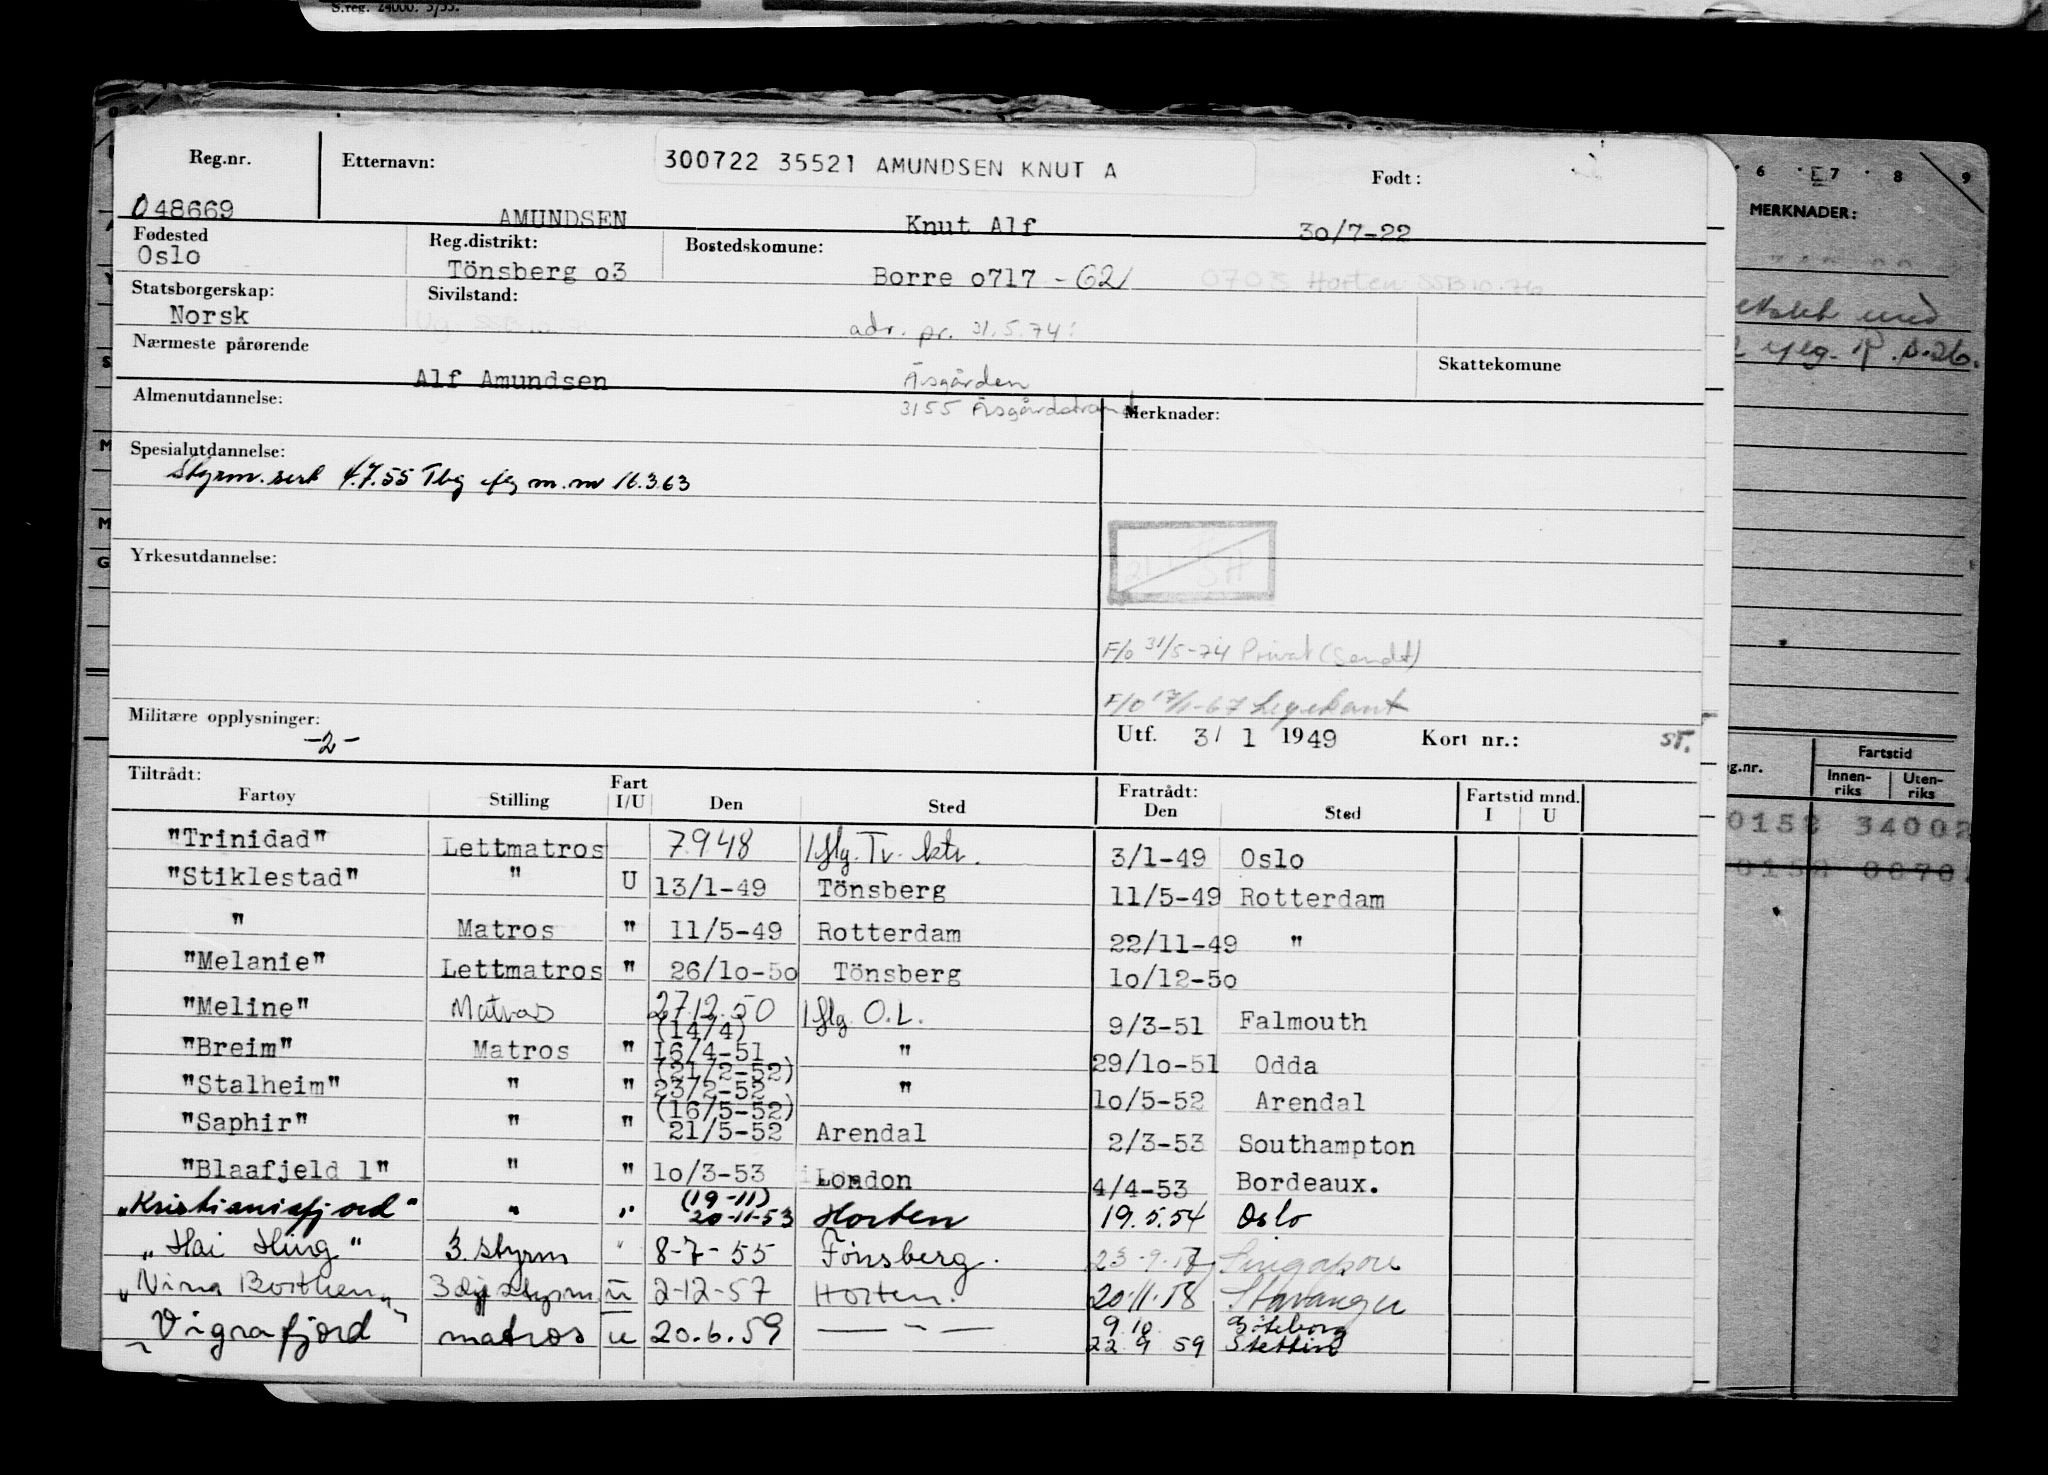 S.reg. 24000. 3/55.
Reg.nr. Etternavn: 300722 35521 AMUNDSEN KNUT A Født:
048669 AMUNDSEN Knut Alf 30/7-22
Fødested Reg.distrikt: Bostedskomune:
Oslo Tönsberg o3 Borre o717 - 62/ 0703 Horten SSB 10.76
Statsborgerskap: Sivilstand:
Norsk adr. pr. 31.5.74:
Nærmeste pårørende Skattekomune
Alf Amundsen Åsgården
Almenutdannelse: 3155 Åsgårdstrand Merknader:
Spesialutdannelse:
Styrm.sert 4.7.55 Tbg efg m.m 16.3.63
Yrkesutdannelse:
F/o 31/5-74 Privat (Sendt)
F/O 17/1-67 Legekont
Militære opplysninger: -2-
Utf. 3/ 1 1949 Kort nr.: ST.
Tiltrådt: Fartøy Stilling Fart I/U Den Sted Fratrådt: Den Sted Fartstid mnd. I U
"Trinidad" Lettmatros 7.9.48 Iflg. Tr. ktr. 3/1-49 Oslo
"Stiklestad" " U 13/1-49 Tönsberg 11/5-49 Rotterdam
" Matros " 11/5-49 Rotterdam 22/11-49 "
"Melanie" Lettmatros " 26/1o-5o Tönsberg 1o/12-5o
"Meline" Matros 27.12.50 Iflg. O.L. 9/3-51 Falmouth
(14/4)
"Breim" Matros " 16/4-51 " 29/1o-51 Odda
(21/2-52)
"Stalheim" " " 23/2-52 " 1o/5-52 Arendal
(16/5-52)
"Saphir" " " 21/5-52 Arendal 2/3-53 Southampton
"Blaafjeld 1" " " 1o/3-53 London 4/4-53 Bordeaux.
(19-11)
"Kristianiafjord" " " 20-11-53 Horten 19.5.54 Oslo
"Hai Hing" 3. styrm " 8-7-55 Tönsberg. 23-9-57 Singapore
"Nina Borthen" 3dj styrm u 2-12-57 Horten. 20.11.58 Stavanger
9.10 Göteborg
"Vigrafjord" matros u 20.6.59 — " — 22.9 59 Stettin
6 7 8 9
MERKNADER:
g.nr. Fartstid
Innen-riks Uten-riks
0158 34002